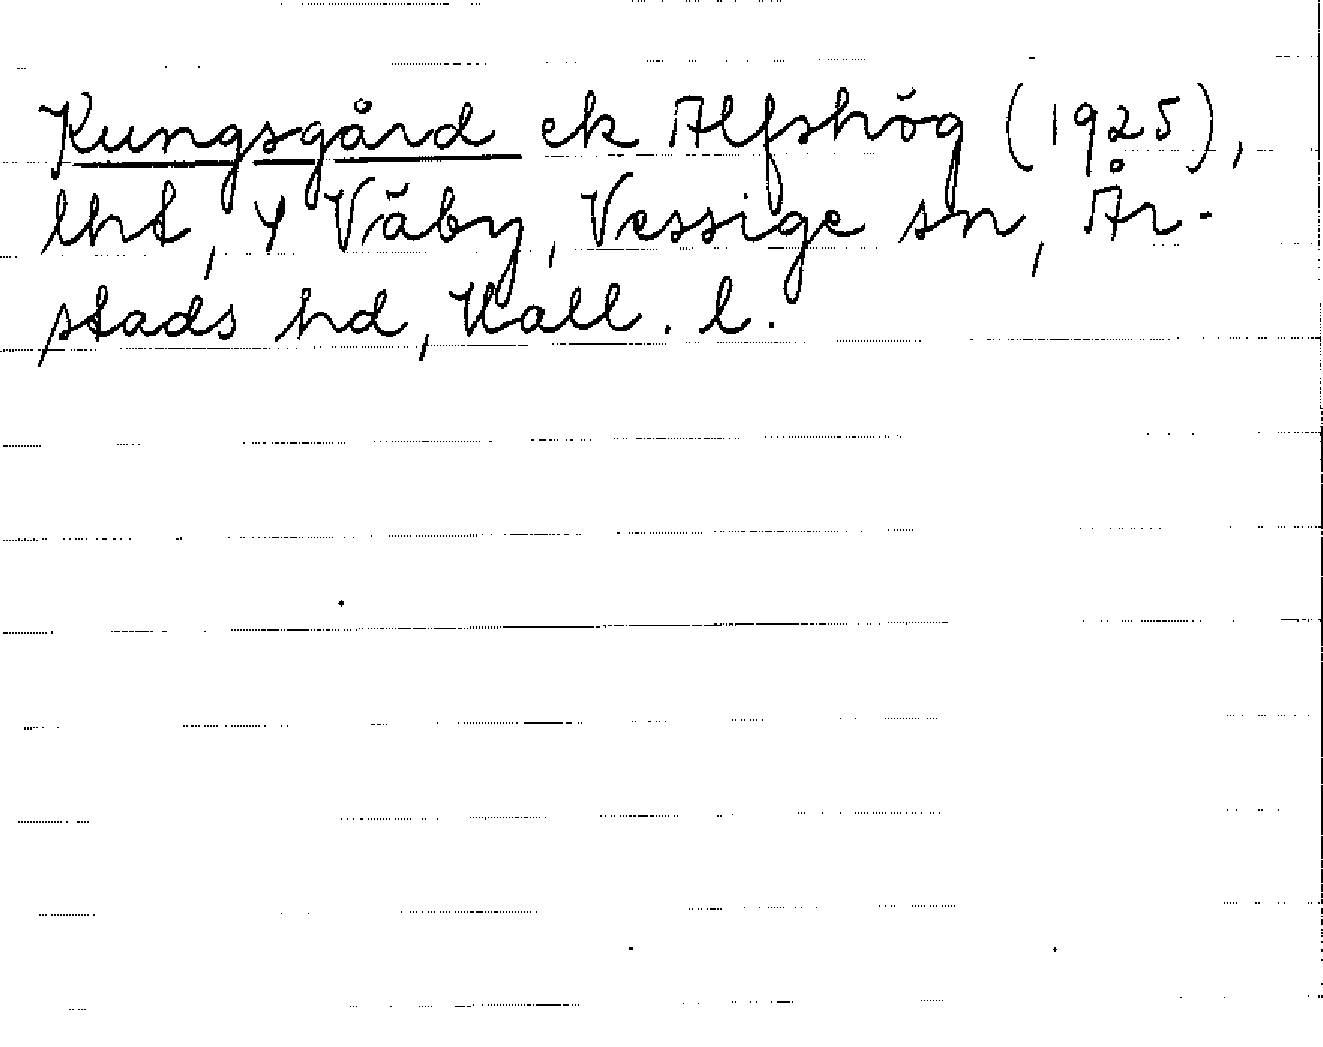 Kungsgård ek Alfshög (1925),
lht, Y Väby, Vessige sn, År-
stads hd, Hall. l.